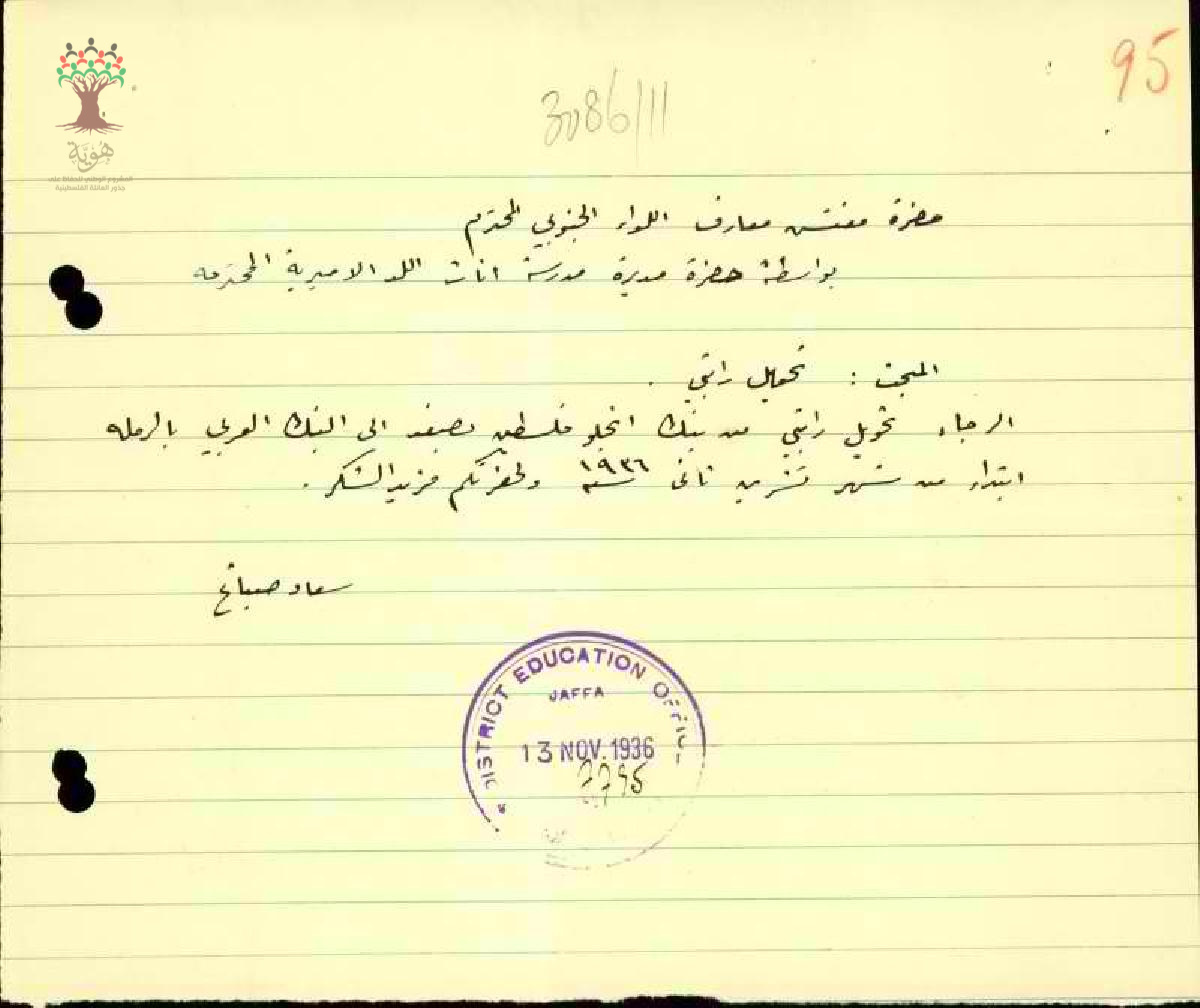 95
3086/11
هوية
المشروع الوطني للحفاظ على
جذور العائلة الفلسطينية
حضرة مفتش معارف اللواء الجنوبي المحترم
بواسطة حضرة مديرة مدرسة اناث اللد الاميرية المحترمه
المبحث : تحويل راتبي .
الرجاء تحويل راتبي من بنك انجلو فلسطين بصفد الى البنك العربي بالرمله
ابتداء من شهر تشرين ثاني سنة ١٩٣٦ ولحضرتكم مزيد الشكر .
سعاد صباغ
DISTRICT EDUCATION OFFICE
JAFFA
13 NOV. 1936